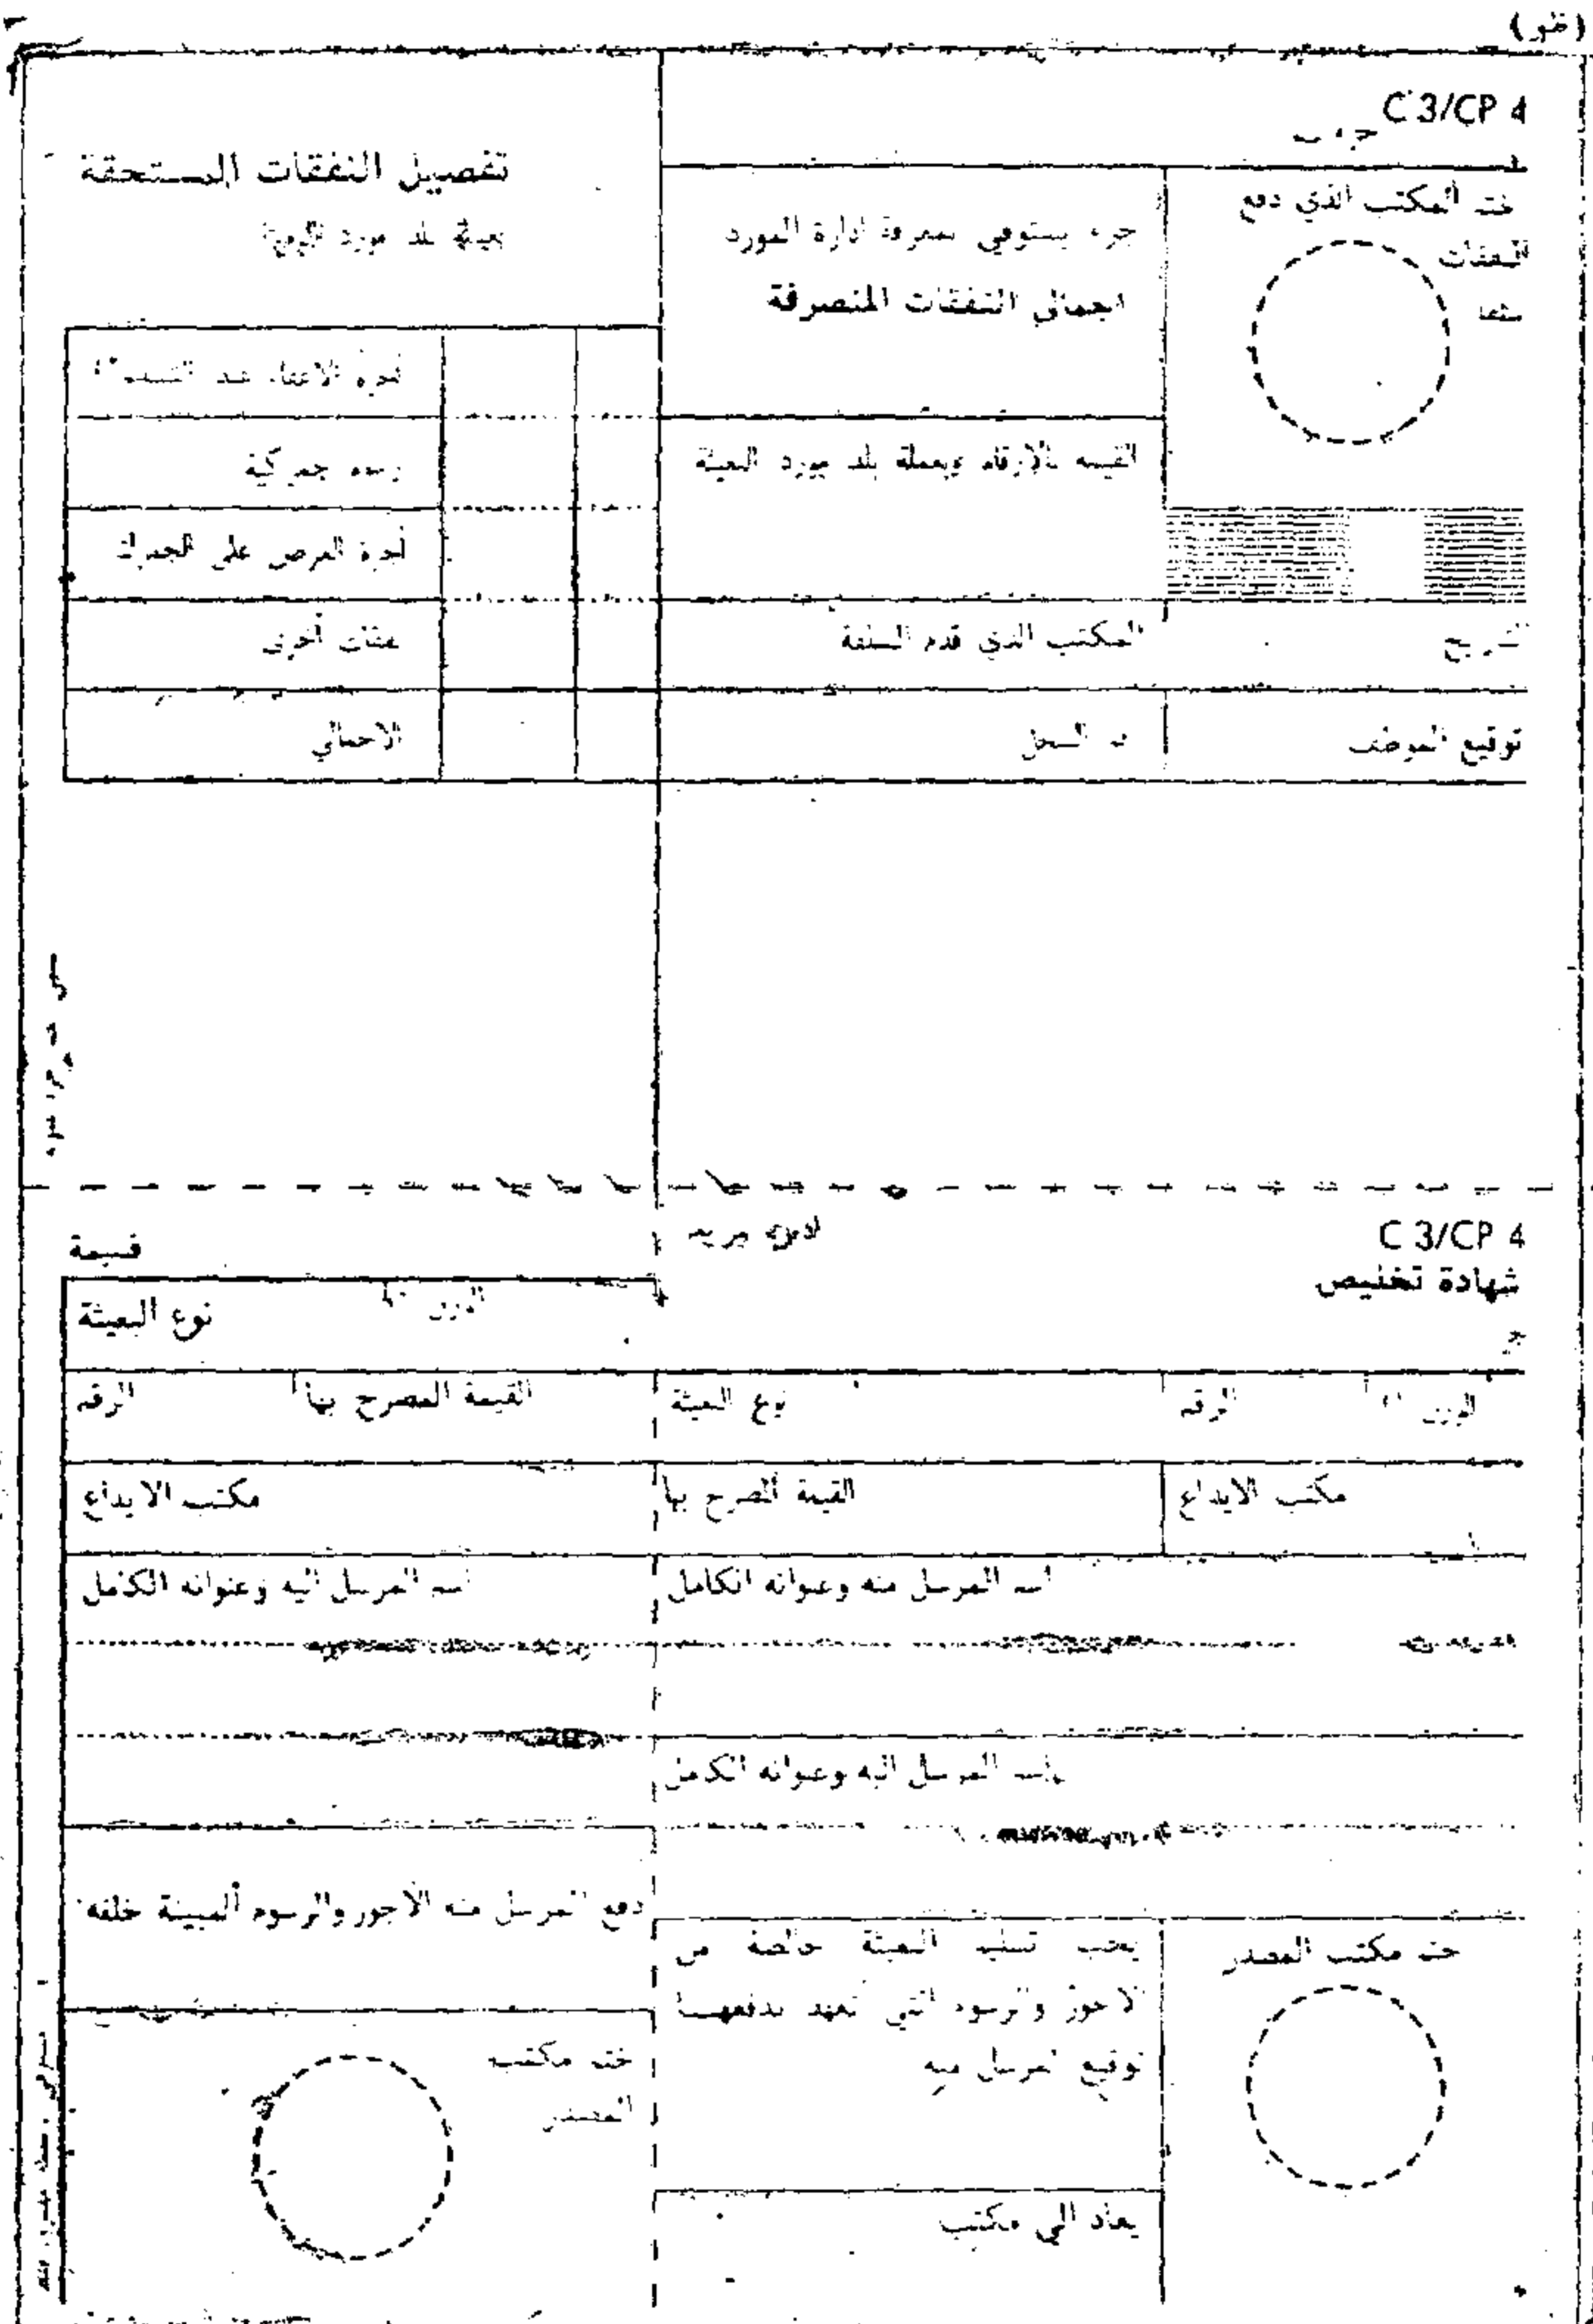 C 3/CP 4
ختم المكتب الذي دفع
النفقات
جزء يستوفى بمعرفة ادارة المورد
اجمالي النفقات المنصرفة
القيمة بالارقام وبعملة بلد مورد البعثة
التاريخ
المكتب الذي قدم السلفة
توقيع الموظف
السجل
تفصيل النفقات المستحقة
بعملة بلد مورد البعثة
رسوم جمركية
أجرة العرض على الجمرك
نفقات أخرى
الاجمالي
C 3/CP 4
شهادة تخليص
الوزن
الرقم
نوع البعثة
مكتب الايداع
القيمة المصرح بها
اسم المرسل منه وعنوانه الكامل
اسم المرسل اليه وعنوانه الكامل
ختم مكتب المصدر
يجب تسليم البعثة خالصة من
الاجور والرسوم التي تعهد بدفعهــا
توقيع المرسل منه
يعاد الى مكتب
قسيمة
نوع البعيثة
الوزن
الرقم
القيمة المصرح بها
مكتب الايداع
اسم المرسل اليه وعنوانه الكامل
دفع المرسل منه الأجور والرسوم المبينة خلفه
ختم مكتب
المصدر